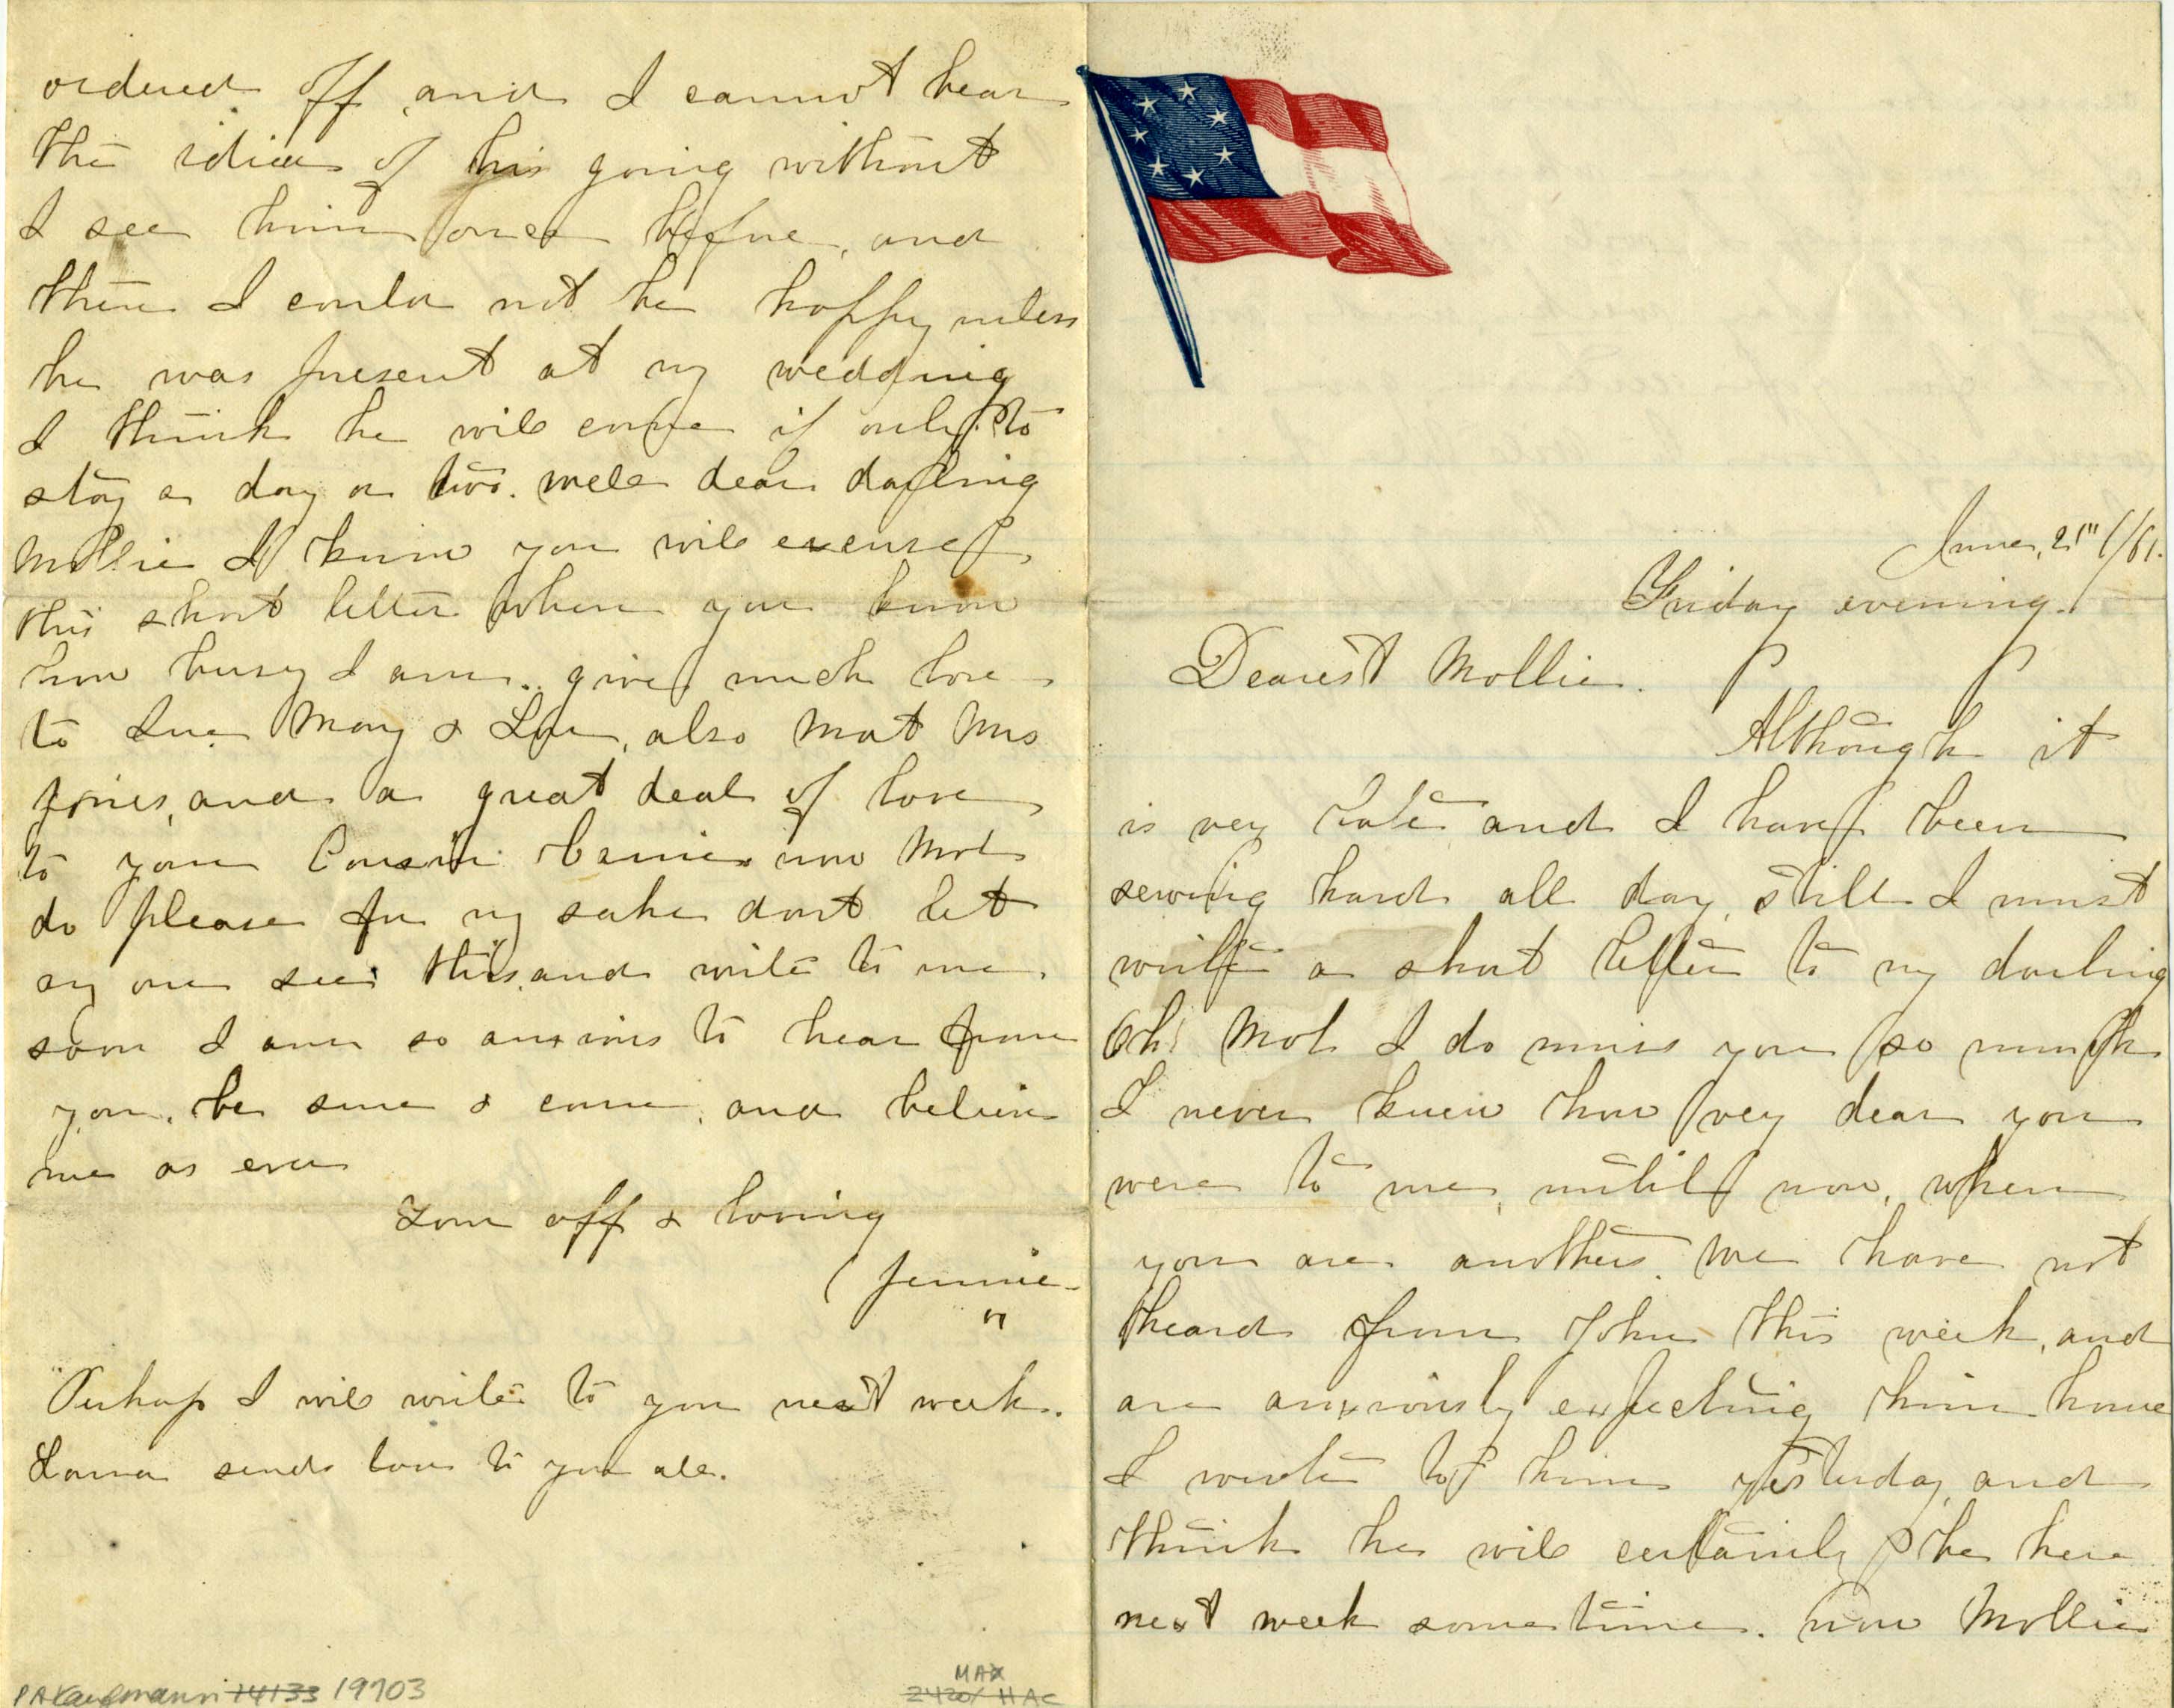 June, 21"/61.
Friday evening.
Dearest Mollie.
Although it
is very late and I have been
sewing hard all day, still I must
write a short letter to my darling
Oh! Mol I do miss you so much
I never knew how very dear you
were to me, until now, when
you are anothers. We have not
heard from John this week, and
are anxiously expecting him home
I wrote to him yesterday, and
think he will certainly be here
next week sometime. Now Mollie
ordered off, and I cannot bear
the idiea of his going without
I see him once before, and
then I could not be happy unless
he was present at my wedding
I think he will come if only to
stay a day or two. well dear darling
Mollie I know you will excuse
this short letter when you know
how busy I am. give much love
to Sue Mary & Lou, also Mat Mrs
Jones, and a great deal of love
to your Cousin now Mol
do please for my sake dont let
any one see this, and write to me
soon I am so anxious to hear from
you, be sure & come, and believe
me as ever
Your aff & loving
Jennie
Perhaps I will write to you next week.
sends love to you all.
PAKaufmann 14133 19703
MAX
HAC